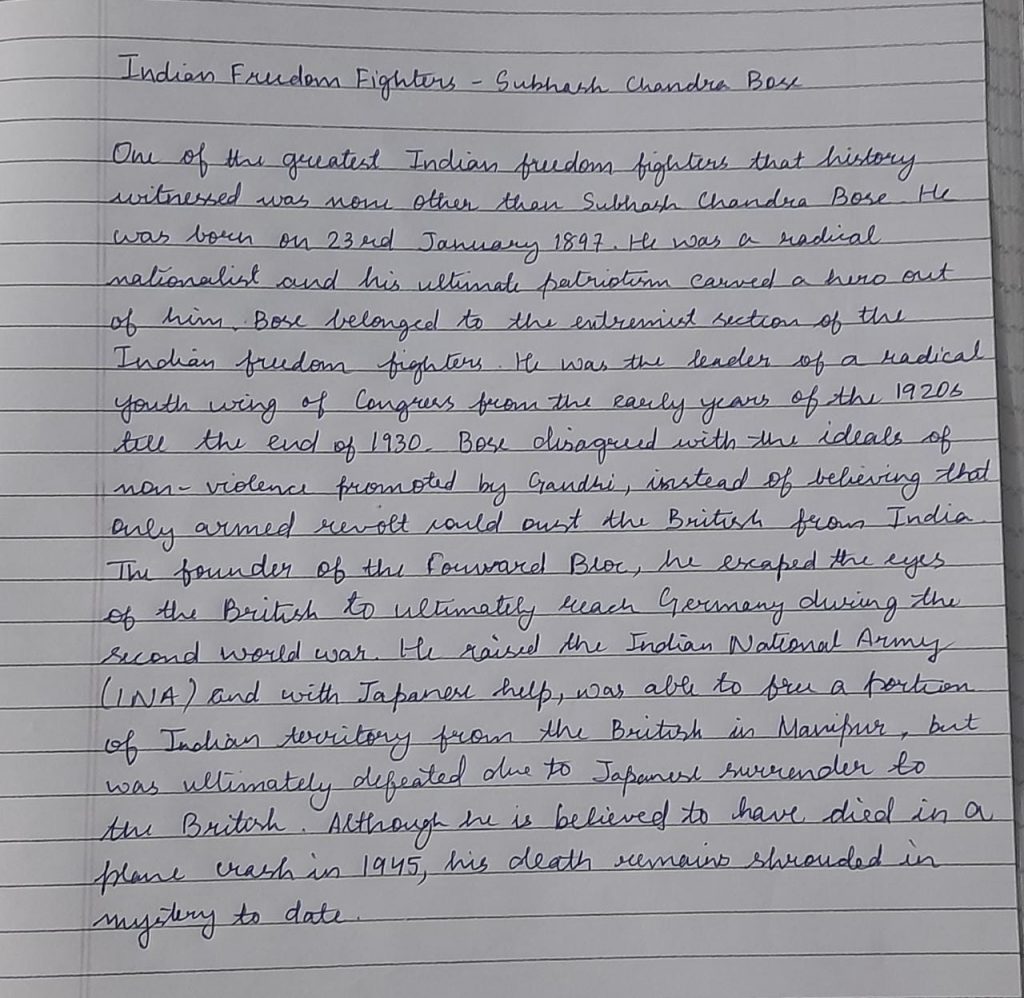 Indian Freedom Fighters - Subhash Chandra Bose
One of the greatest Indian freedom fighters that history
witnessed was none other than Subhash Chandra Bose. He
was born on 23rd January 1897. He was a radical
nationalist and his ultimate patriotism carved a hero out
of him. Bose belonged to the extremist section of the
Indian freedom fighters. He was the leader of a radical
youth wing of Congress from the early years of the 1920s
till the end of 1930. Bose disagreed with the ideals of
non-violence promoted by Gandhi, instead of believing that
only armed revolt could oust the British from India.
The founder of the Forward Bloc, he escaped the eyes
of the British to ultimately reach Germany during the
second world war. He raised the Indian National Army
(INA) and with Japanese help, was able to free a portion
of Indian territory from the British in Manipur, but
was ultimately defeated due to Japanese surrender to
the British. Although he is believed to have died in a
plane crash in 1945, his death remains shrouded in
mystery to date.